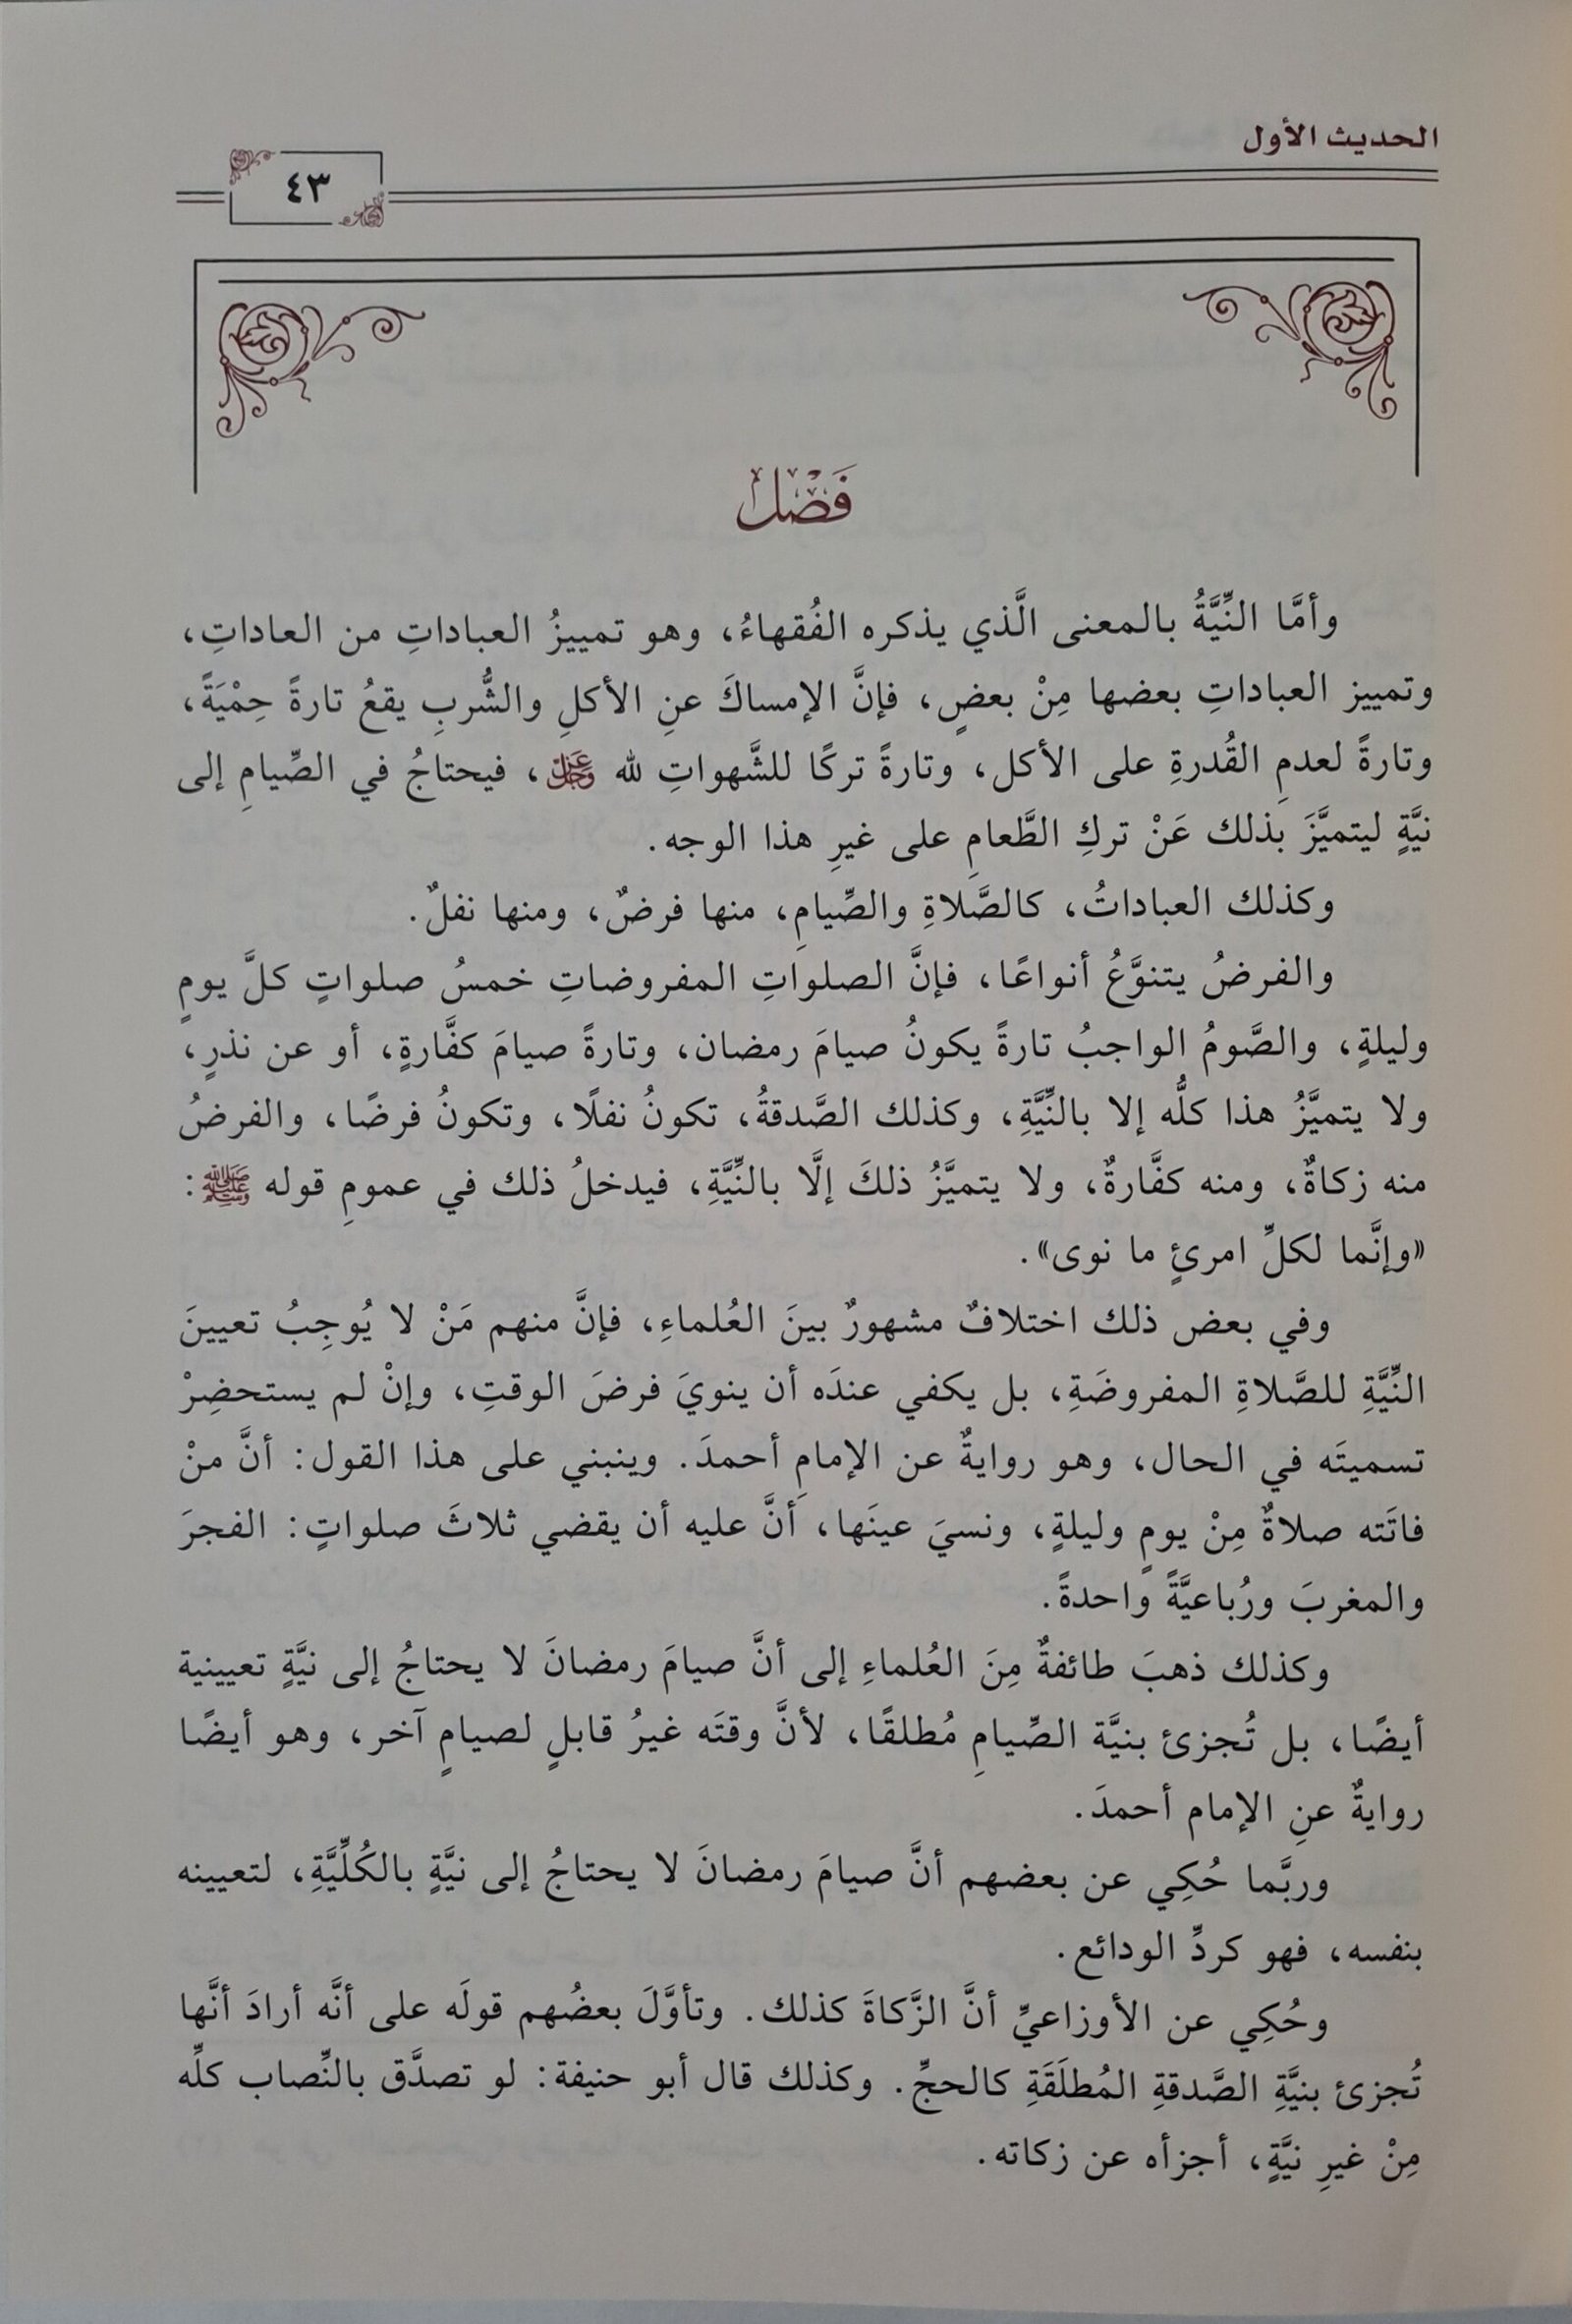 الحديث الأول
٤٣
فَصْل
وأمَّا النِّيَّةُ بالمعنى الَّذي يذكره الفُقهاءُ، وهو تمييزُ العباداتِ من العاداتِ،
وتمييز العباداتِ بعضها مِنْ بعضٍ، فإنَّ الإمساكَ عنِ الأكلِ والشُّربِ يقعُ تارةً حِمْيَةً،
وتارةً لعدمِ القُدرةِ على الأكل، وتارةً تركًا للشَّهواتِ لله عَزَّوَجَلَّ، فيحتاجُ في الصِّيامِ إلى
نيَّةٍ ليتميَّزَ بذلك عَنْ تركِ الطَّعامِ على غيرِ هذا الوجه.
وكذلك العباداتُ، كالصَّلاةِ والصِّيامِ، منها فرضٌ، ومنها نفلٌ.
والفرضُ يتنوَّعُ أنواعًا، فإنَّ الصلواتِ المفروضاتِ خمسُ صلواتٍ كلَّ يومٍ
وليلةٍ، والصَّومُ الواجبُ تارةً يكونُ صيامَ رمضان، وتارةً صيامَ كفَّارةٍ، أو عن نذرٍ،
ولا يتميَّزُ هذا كلُّه إلا بالنِّيَّةِ، وكذلك الصَّدقةُ، تكونُ نفلًا، وتكونُ فرضًا، والفرضُ
منه زكاةٌ، ومنه كفَّارةٌ، ولا يتميَّزُ ذلكَ إلَّا بالنِّيَّةِ، فيدخلُ ذلك في عمومِ قوله ﷺ:
«وإنَّما لكلِّ امرئٍ ما نوى».
وفي بعض ذلك اختلافٌ مشهورٌ بينَ العُلماءِ، فإنَّ منهم مَنْ لا يُوجِبُ تعيينَ
النِّيَّةِ للصَّلاةِ المفروضَةِ، بل يكفي عندَه أن ينويَ فرضَ الوقتِ، وإنْ لم يستحضِرْ
تسميتَه في الحال، وهو روايةٌ عن الإمامِ أحمدَ. وينبني على هذا القول: أنَّ منْ
فاتَته صلاةٌ مِنْ يومٍ وليلةٍ، ونسيَ عينَها، أنَّ عليه أن يقضي ثلاثَ صلواتٍ: الفجرَ
والمغربَ ورُباعيَّةً واحدةً.
وكذلك ذهبَ طائفةٌ مِنَ العُلماءِ إلى أنَّ صيامَ رمضانَ لا يحتاجُ إلى نيَّةٍ تعيينية
أيضًا، بل تُجزئ بنيَّة الصِّيامِ مُطلقًا، لأنَّ وقتَه غيرُ قابلٍ لصيامٍ آخر، وهو أيضًا
روايةٌ عنِ الإمام أحمدَ.
وربَّما حُكِي عن بعضهم أنَّ صيامَ رمضانَ لا يحتاجُ إلى نيَّةٍ بالكُلِّيَّةِ، لتعيينه
بنفسه، فهو كردِّ الودائع.
وحُكِي عن الأوزاعيِّ أنَّ الزَّكاةَ كذلك. وتأوَّلَ بعضُهم قولَه على أنَّه أرادَ أنَّها
تُجزئ بنيَّةِ الصَّدقةِ المُطلَقَةِ كالحجِّ. وكذلك قال أبو حنيفة: لو تصدَّق بالنِّصاب كلِّه
مِنْ غيرِ نيَّةٍ، أجزأه عن زكاته.